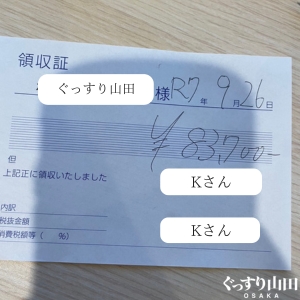 領収証
ぐっすり山田 様 R7年 9月 26日
¥83,700-
但
上記正に領収いたしました
Kさん
内訳
税抜金額
Kさん
消費税額等( %)
ぐっすり山田
OSAKA